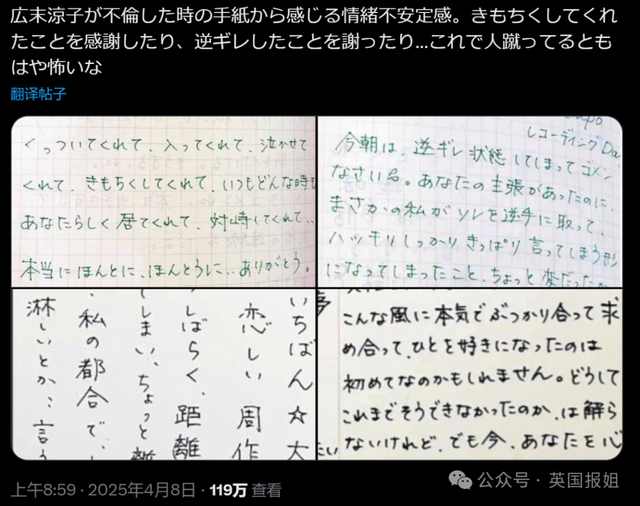 広末涼子が不倫した時の手紙から感じる情緒不安定感。きもちくしてくれ
たことを感謝したり、逆ギレしたことを謝ったり...これで人蹴ってるとも
はや怖いな
翻译帖子
くっついてくれて、入ってくれて、泣かせて
くれて、きもちくしてくれて、いつもどんな時も
あなたらしく居てくれて、対峙してくれて…
本当にほんとに、ほんとうに…ありがとう。
レコーディング Da
今朝は、逆ギレ状態してしまってゴメン
なさい名。あなたの主張があったのに、
まさかの私がソレを逆手に取って、
ハッキリしっかりきっぱり言ってしまう形
になってしまったこと、ちょっと
いちばん☆大
恋しい 周作
しばらく、距離
てしまい、ちょっと
、私の都合で、
淋しいとか、言う
こんな風に本気でぶつかり合って求
め合って、ひとを好きになったのは
初めてなのかもしれません。どうして
これまでそうできなかったのか、は解ら
ないけれど、でも今、あなたを心
公众号 · 英国报姐
上午8:59 · 2025年4月8日 · 119万 查看